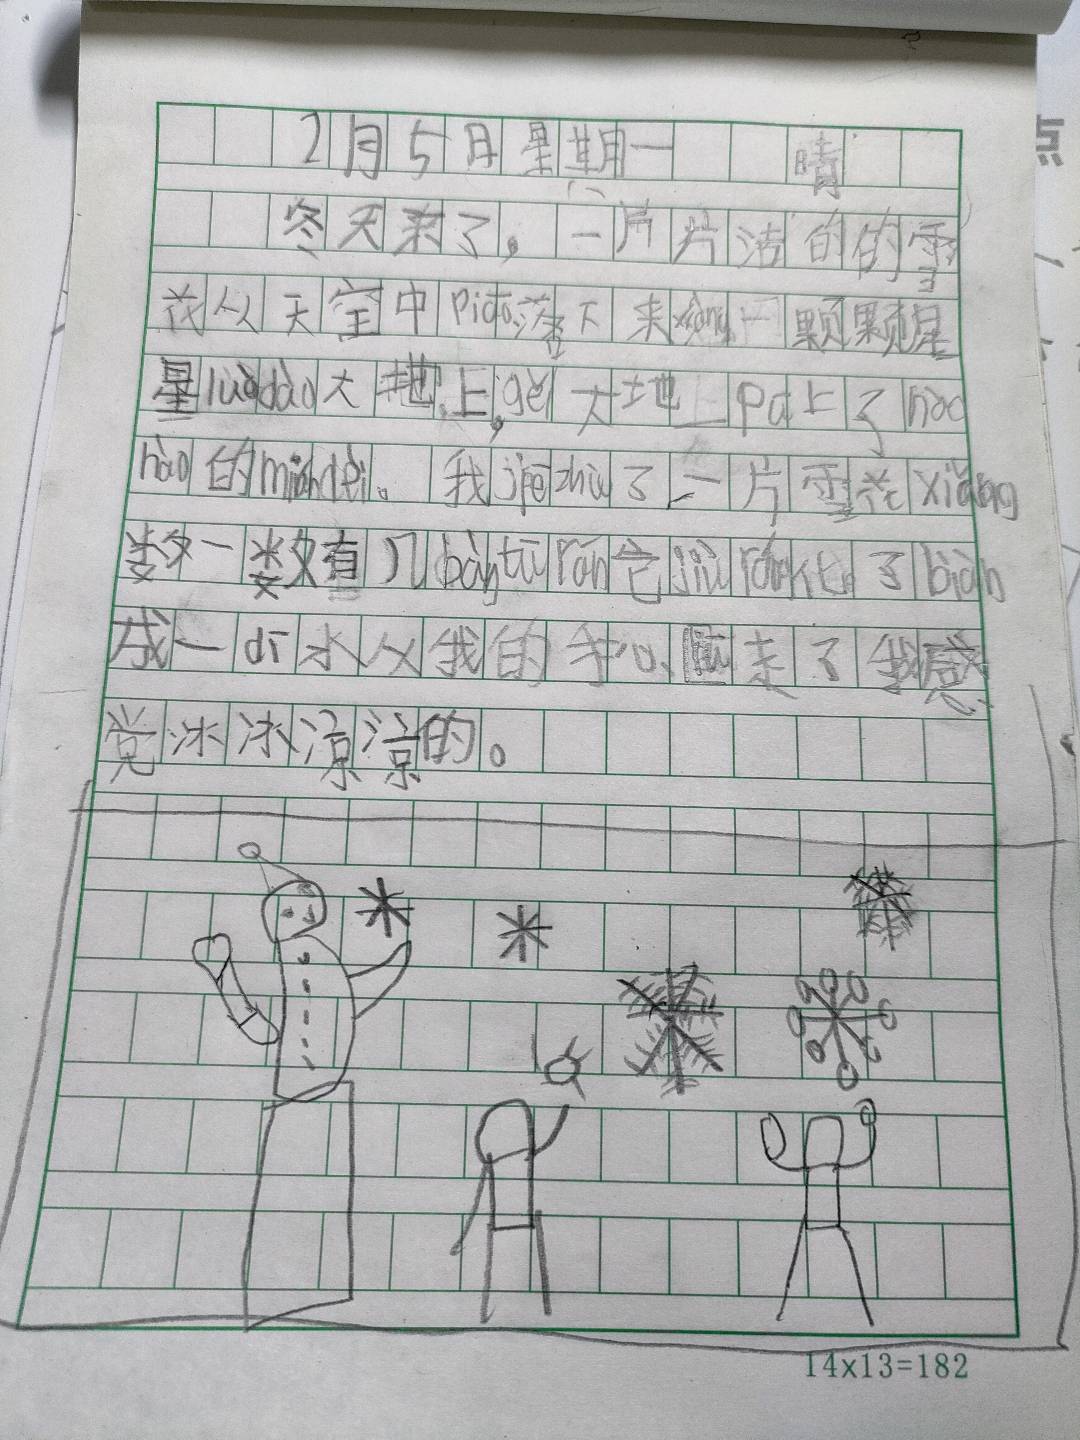 2月5日星期一 晴
冬天来了，一片片洁的的雪
花从天空中piāo落下来xiàng一颗颗星
星luòdào大地上，gěi大地上pū上了hòu
hòu的miánbèi。我jiēzhù了一片雪花xiǎng
数一数有几bàntūrán它jiùrónghuà了biàn
成一dī水从我的手心溜走了我感
觉冰冰凉凉的。
点
14x13=182